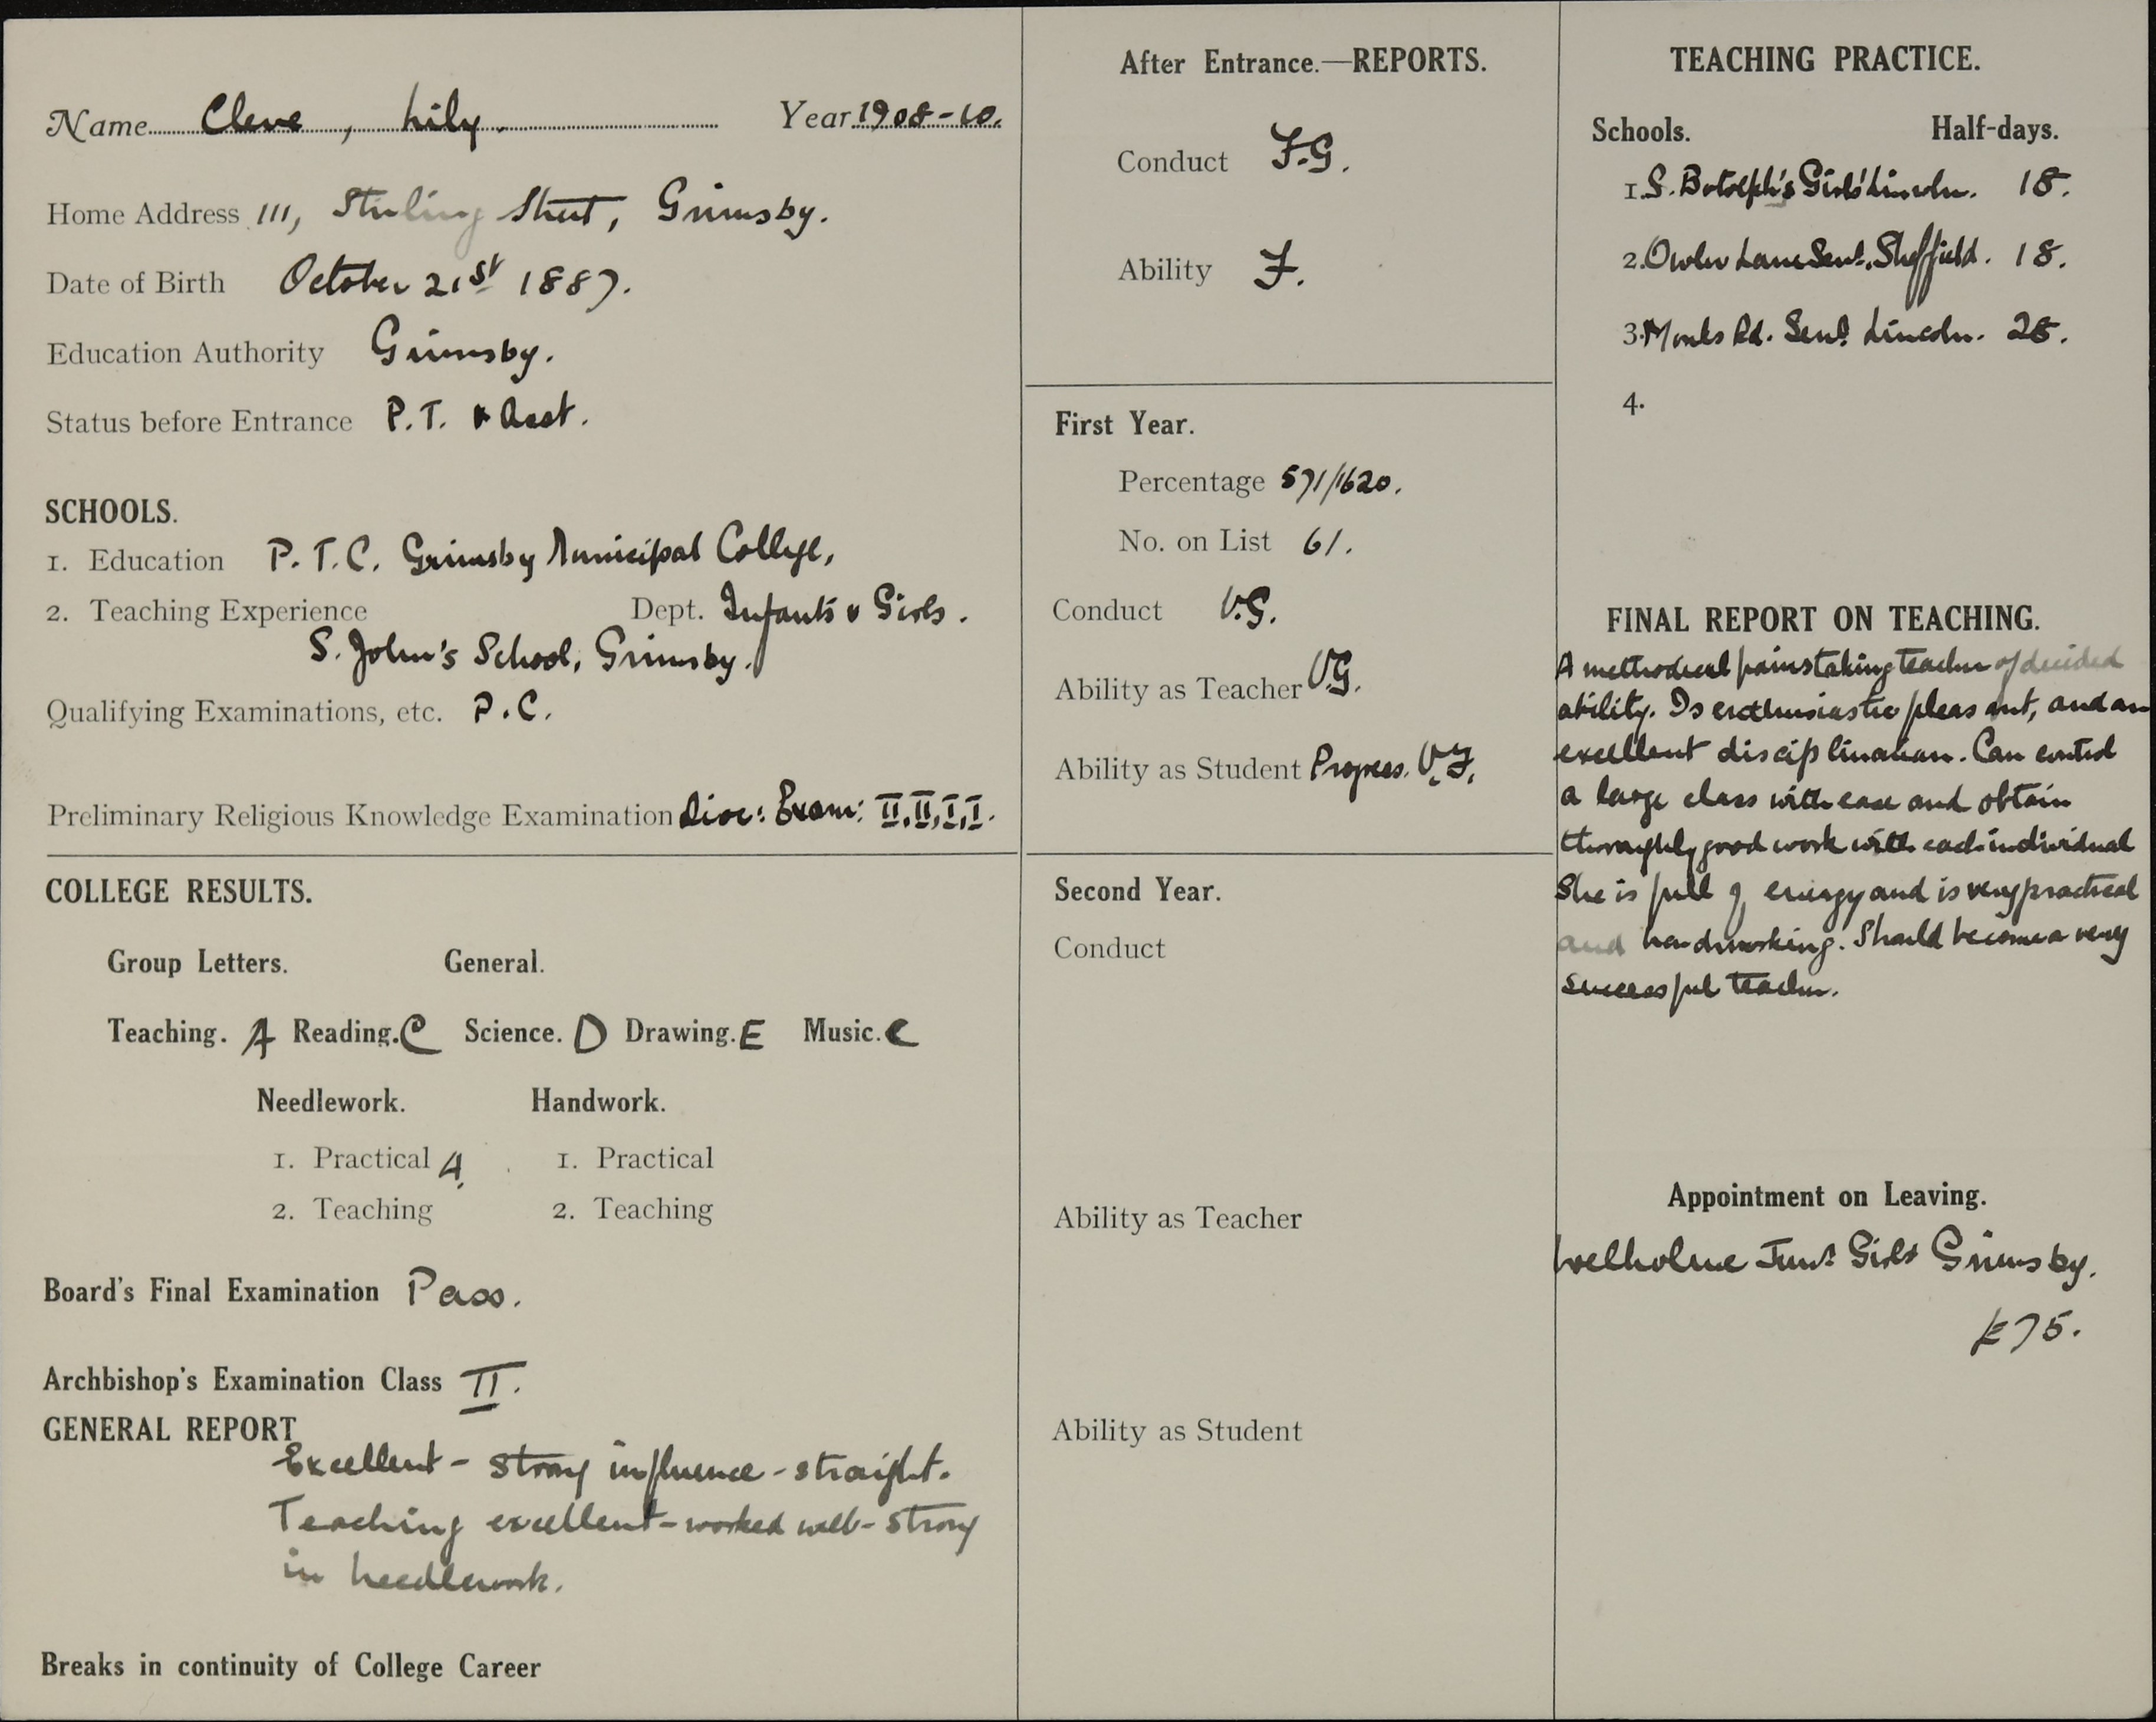 Name Cleve, Lily. Year 1908-10.
Home Address 111, Stirling Street, Grimsby.
Date of Birth October 21st 1887.
Education Authority Grimsby.
Status before Entrance P.T. & Asst.
SCHOOLS.
1. Education P.T.C. Grimsby Municipal College,
2. Teaching Experience Dept. Infants & Girls.
S. John's School, Grimsby.
Qualifying Examinations, etc. P.C.
Preliminary Religious Knowledge Examination Dioc: Exam: II, II, I, I.
COLLEGE RESULTS.
Group Letters. General.
Teaching. A Reading. C Science. D Drawing. E Music. C
Needlework. Handwork.
1. Practical 4. 1. Practical
2. Teaching 2. Teaching
Board's Final Examination Pass.
Archbishop's Examination Class II.
GENERAL REPORT
Excellent - strong influence - straight.
Teaching excellent - worked well - strong
in needlework.
Breaks in continuity of College Career
After Entrance.—REPORTS.
Conduct F.G.
Ability F.
First Year.
Percentage 571/1620.
No. on List 61.
Conduct V.G.
Ability as Teacher V.G.
Ability as Student Progress. V.F.
Second Year.
Conduct
Ability as Teacher
Ability as Student
TEACHING PRACTICE.
Schools. Half-days.
1. S. Botolph's Girls' Lincoln. 18.
2. Owler Lane Senr. Sheffield. 18.
3. Monks Rd. Senr. Lincoln. 28.
4.
FINAL REPORT ON TEACHING.
A methodical painstaking teacher of decided
ability. Is enthusiastic pleasant, and an
excellent disciplinarian. Can control
a large class with ease and obtain
thoroughly good work with each individual
She is full of energy and is very practical
and hardworking. Should become a very
successful teacher.
Appointment on Leaving.
Welholme Junr. Girls Grimsby.
£75.